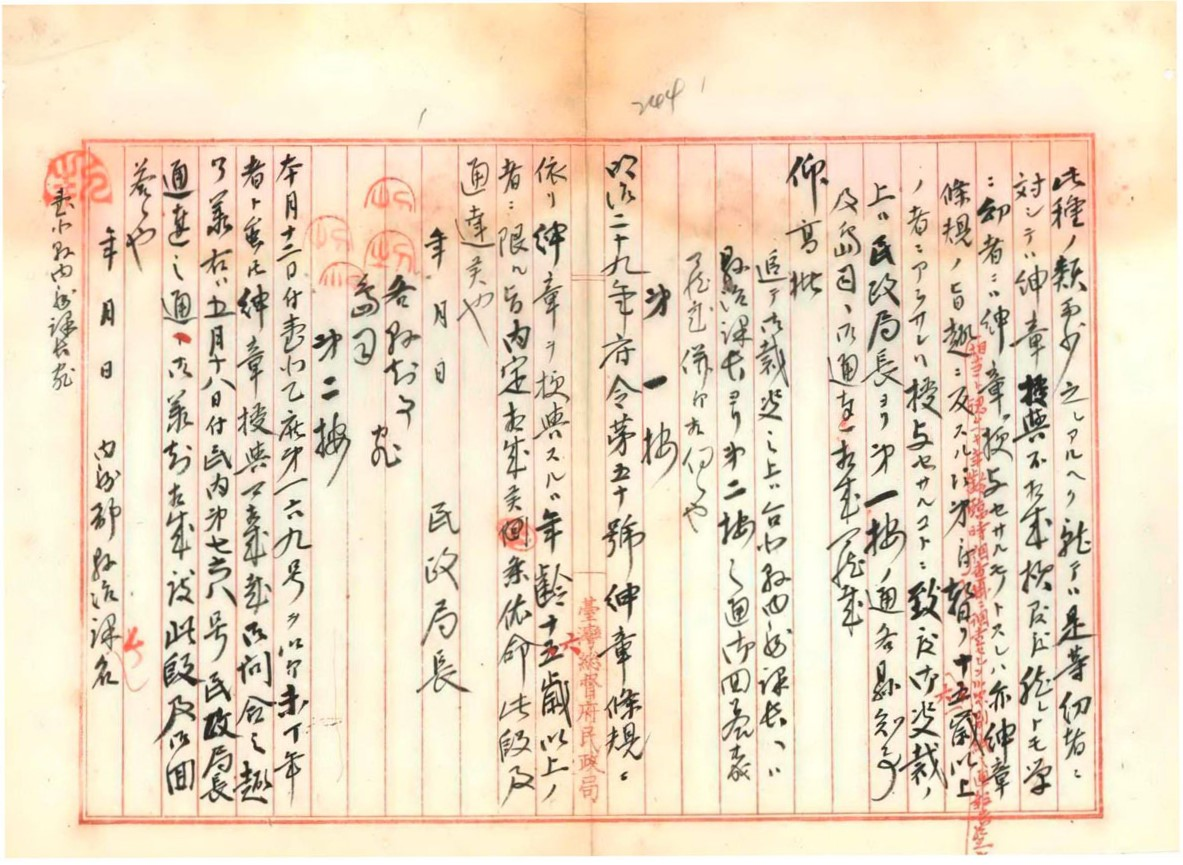 此種ノ類多少之レアルヘク就テハ是等幼者ニ
対シテハ紳章授與不相成様致度然レトモ単
ニ幼者ニハ紳章ヲ授与セサルモノトスレハ亦紳章
條規ノ旨趣ニ反スル次第ニ付暫ク十五歳以上
ノ者ニアラサレハ授与セサルコトニ致度御決裁ノ
上ハ民政局長ヨリ第一按ノ通各縣知事
及島司ヘ御通達相成可然哉
仰高批
追テ御裁決之上ハ台北縣内務課長ヘハ
縣治課長ヨリ第二按之通御回答
可然哉併セテ相伺候也
第一按
明治二十九年府令第五十號紳章條規ニ
依リ紳章ヲ授與スルハ年齢十五六歳以上ノ
者ニ限ル旨内定相成候間依命此段及
通達候也
年月日
民政局長
各縣知事宛
島司
第二按
本月十二日付臺北乙庶第一六九号ヲ以テ未丁年
者ト雖モ紳章授與可相成哉御伺合之趣
了承右ハ五月十八日付民内第七六八号民政局長
通達之通ニ御承知相成度此段及御回
答候也
年月日
内務部縣治課名
臺北縣内務課長宛
臺灣總督府民政局
244